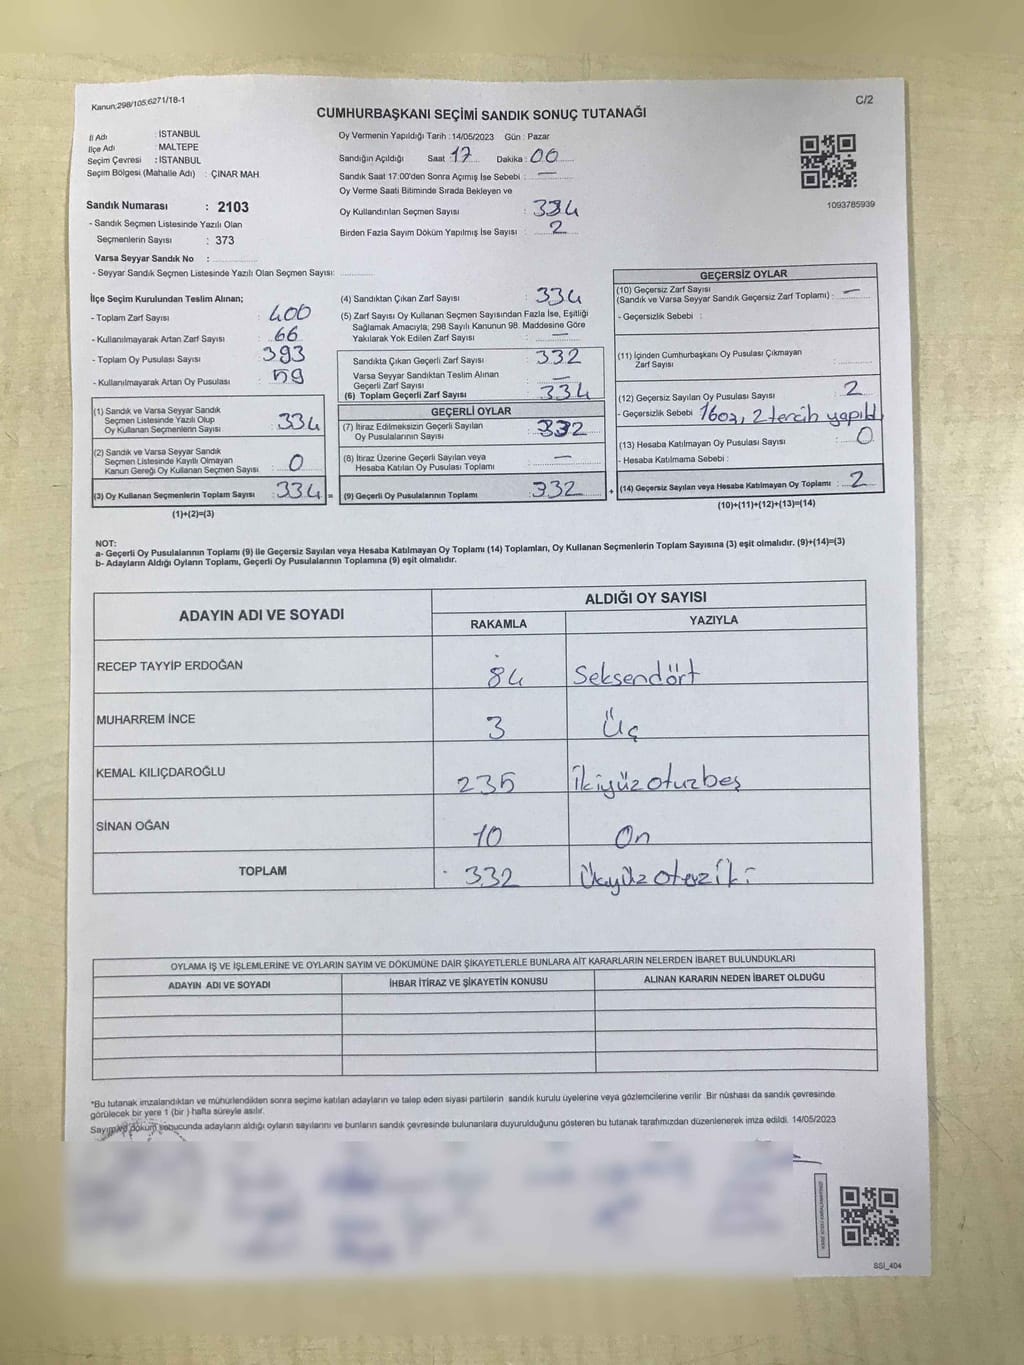 Kanun;298/105;6271/18-1
C/2
CUMHURBAŞKANI SEÇİMİ SANDIK SONUÇ TUTANAĞI
İl Adı : İSTANBUL
İlçe Adı : MALTEPE
Seçim Çevresi : İSTANBUL
Seçim Bölgesi (Mahalle Adı) : ÇINAR MAH.
Sandık Numarası : 2103
- Sandık Seçmen Listesinde Yazılı Olan
Seçmenlerin Sayısı : 373
Varsa Seyyar Sandık No :
- Seyyar Sandık Seçmen Listesinde Yazılı Olan Seçmen Sayısı:
Oy Vermenin Yapıldığı Tarih : 14/05/2023 Gün : Pazar
Sandığın Açıldığı Saat : 17 Dakika : 00
Sandık Saat 17.00'den Sonra Açımış İse Sebebi : —
Oy Verme Saati Bitiminde Sırada Bekleyen ve
Oy Kullandırılan Seçmen Sayısı : 334
Birden Fazla Sayım Döküm Yapılmış İse Sayısı : 2
1093785939
İlçe Seçim Kurulundan Teslim Alınan;
- Toplam Zarf Sayısı : 400
- Kullanılmayarak Artan Zarf Sayısı : 66
- Toplam Oy Pusulası Sayısı : 393
- Kullanılmayarak Artan Oy Pusulası : 59
(1) Sandık ve Varsa Seyyar Sandık
Seçmen Listesinde Yazılı Olup
Oy Kullanan Seçmenlerin Sayısı : 334
(2) Sandık ve Varsa Seyyar Sandık
Seçmen Listesinde Kayıtlı Olmayan
Kanun Gereği Oy Kullanan Seçmen Sayısı : 0
(3) Oy Kullanan Seçmenlerin Toplam Sayısı : 334 =
(1)+(2)=(3)
(4) Sandıktan Çıkan Zarf Sayısı : 334
(5) Zarf Sayısı Oy Kullanan Seçmen Sayısından Fazla İse, Eşitliği
Sağlamak Amacıyla; 298 Sayılı Kanunun 98. Maddesine Göre
Yakılarak Yok Edilen Zarf Sayısı : —
Sandıkta Çıkan Geçerli Zarf Sayısı : 332
Varsa Seyyar Sandıktan Teslim Alınan
Geçerli Zarf Sayısı : —
(6) Toplam Geçerli Zarf Sayısı : 334
GEÇERLİ OYLAR
(7) İtiraz Edilmeksizin Geçerli Sayılan
Oy Pusulalarının Sayısı : 332
(8) İtiraz Üzerine Geçerli Sayılan veya
Hesaba Katılan Oy Pusulası Toplamı : —
(9) Geçerli Oy Pusulalarının Toplamı : 332 +
GEÇERSİZ OYLAR
(10) Geçersiz Zarf Sayısı
(Sandık ve Varsa Seyyar Sandık Geçersiz Zarf Toplamı) : —
- Geçersizlik Sebebi :
(11) İçinden Cumhurbaşkanı Oy Pusulası Çıkmayan
Zarf Sayısı :
(12) Geçersiz Sayılan Oy Pusulası Sayısı : 2
- Geçersizlik Sebebi 2 tercih yapıldı
(13) Hesaba Katılmayan Oy Pusulası Sayısı : 0
- Hesaba Katılmama Sebebi :
(14) Geçersiz Sayılan veya Hesaba Katılmayan Oy Toplamı : 2
(10)+(11)+(12)+(13)=(14)
NOT:
a- Geçerli Oy Pusulalarının Toplamı (9) ile Geçersiz Sayılan veya Hesaba Katılmayan Oy Toplamı (14) Toplamları, Oy Kullanan Seçmenlerin Toplam Sayısına (3) eşit olmalıdır. (9)+(14)=(3)
b- Adayların Aldığı Oyların Toplamı, Geçerli Oy Pusulalarının Toplamına (9) eşit olmalıdır.
ADAYIN ADI VE SOYADI
ALDIĞI OY SAYISI
RAKAMLA YAZIYLA
RECEP TAYYİP ERDOĞAN 84 Seksendört
MUHARREM İNCE 3 Üç
KEMAL KILIÇDAROĞLU 235 İkiyüz otuzbeş
SİNAN OĞAN 10 On
TOPLAM 332
OYLAMA İŞ VE İŞLEMLERİNE VE OYLARIN SAYIM VE DÖKÜMÜNE DAİR ŞİKAYETLERLE BUNLARA AİT KARARLARIN NELERDEN İBARET BULUNDUKLARI
ADAYIN ADI VE SOYADI İHBAR İTİRAZ VE ŞİKAYETİN KONUSU ALINAN KARARIN NEDEN İBARET OLDUĞU
*Bu tutanak imzalandıktan ve mühürlendikten sonra seçime katılan adayların ve talep eden siyasi partilerin sandık kurulu üyelerine veya gözlemcilerine verilir. Bir nüshası da sandık çevresinde
görülecek bir yere 1 (bir ) hafta süreyle asılır.
Sayım ve döküm sonucunda adayların aldığı oyların sayılarını ve bunların sandık çevresinde bulunanlara duyurulduğunu gösteren bu tutanak tarafımızdan düzenlenerek imza edildi. 14/05/2023
SSİ_404